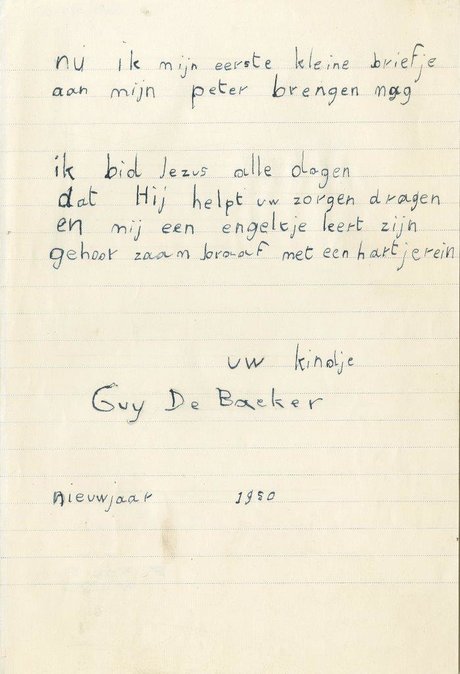 nu ik mijn eerste kleine briefje
aan mijn peter brengen mag
ik bid Jezus alle dagen
dat Hij helpt uw zorgen dragen
en mij een engeltje leert zijn
gehoor zaam braaf met een hartje rein
uw kindje
Guy De Backer
nieuwjaar 1950